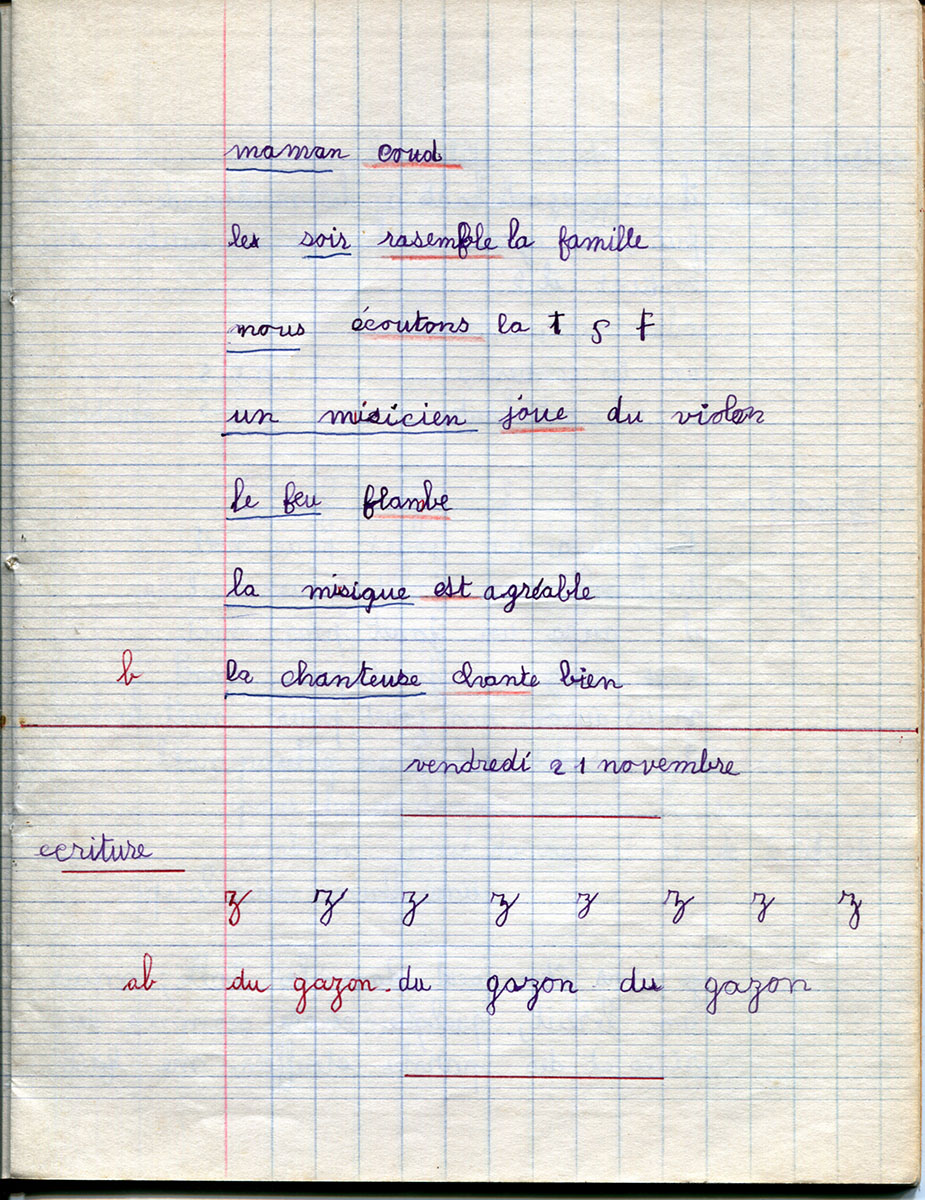 maman coud
les soir rasemble la famille
nous écoutons la t s f
un misicien joue du violon
le feu flambe
la misique est agréable
b la chanteuse chante bien
vendredi 21 novembre
ecriture
z z z z z z z z
ab du gazon. du gazon du gazon